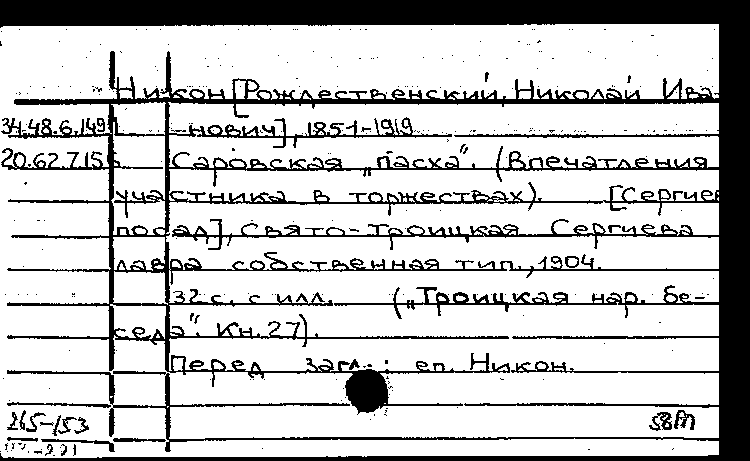 Никон [Рождественский, Николай Ива-
34.48.6.149 -нович], 1851-1919
20.62.7.15 Саровская „пасха". (Впечатления
участника в торжествах). [Сергиев
посад], Свято-Троицкая Сергиева
лавра собственная тип., 1904.
32 с. с илл. („Троицкая нар. бе-
седа". Кн. 27).
Перед загл.: еп. Никон.
265-153